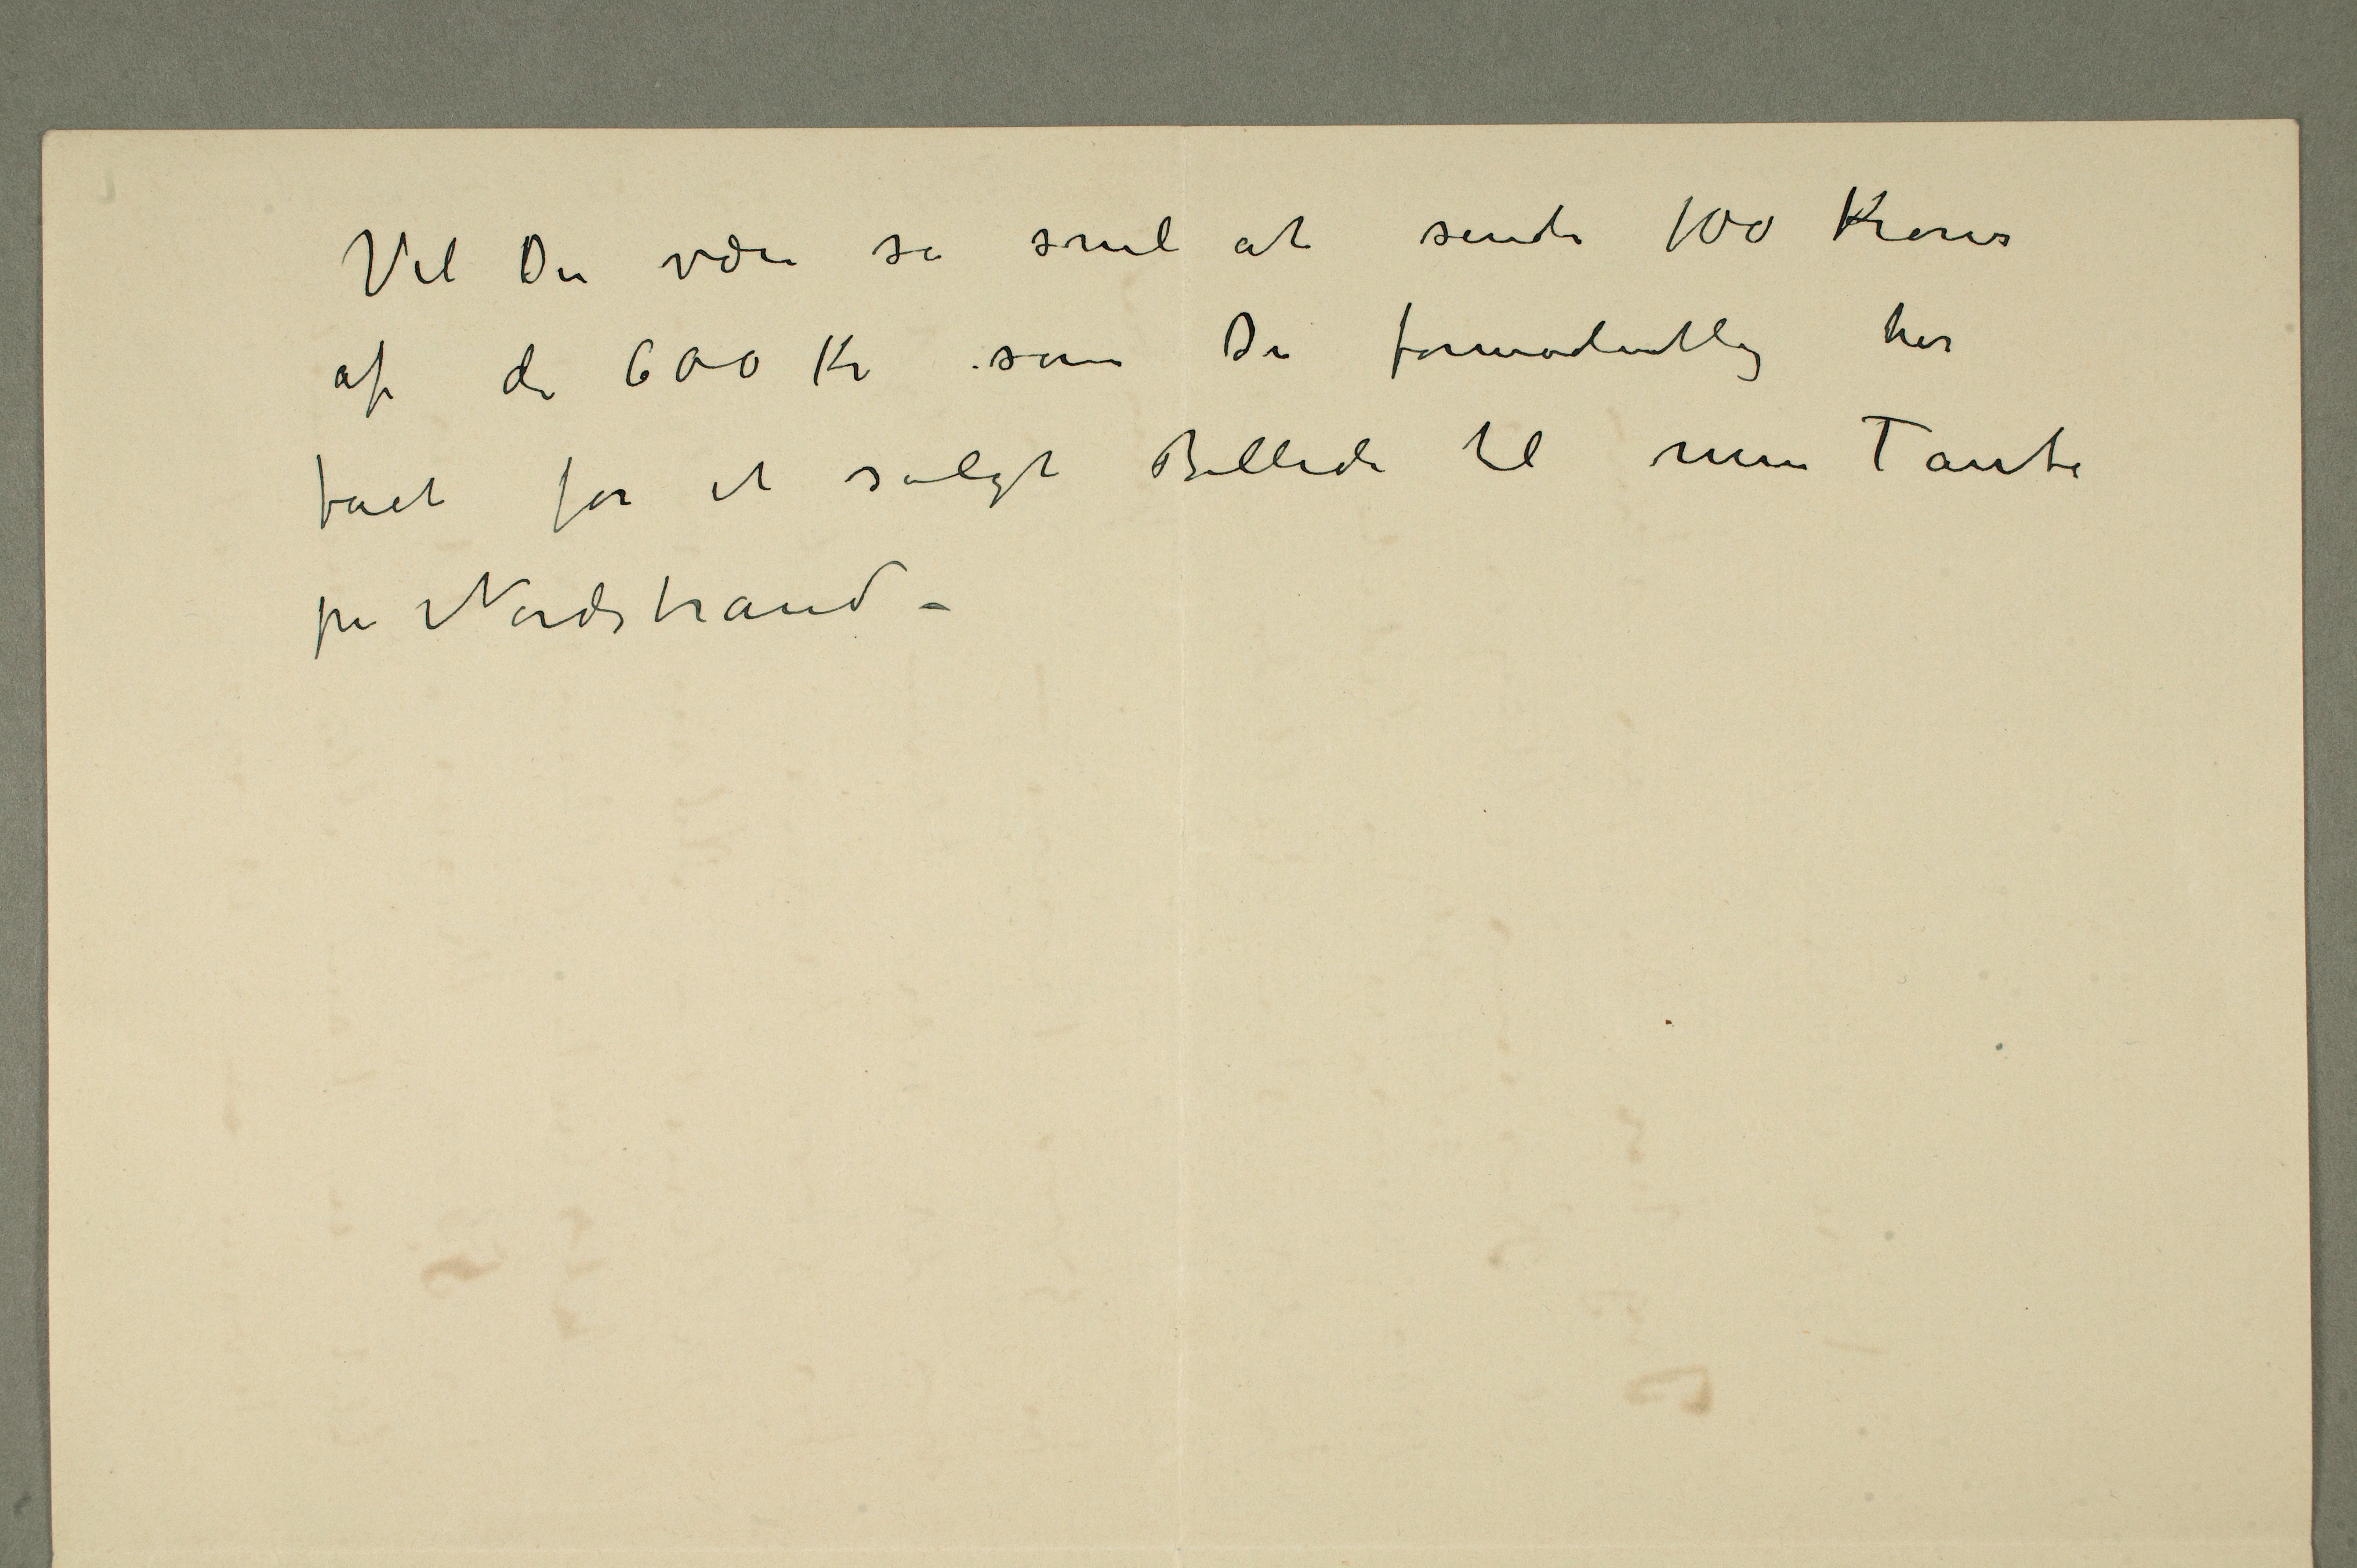 Vil Du være så snil at sende 100 Kroner
af de 600 Kr som Du formodentlig har
fået for et solgt Billede til min Tante
på Nordstrand –